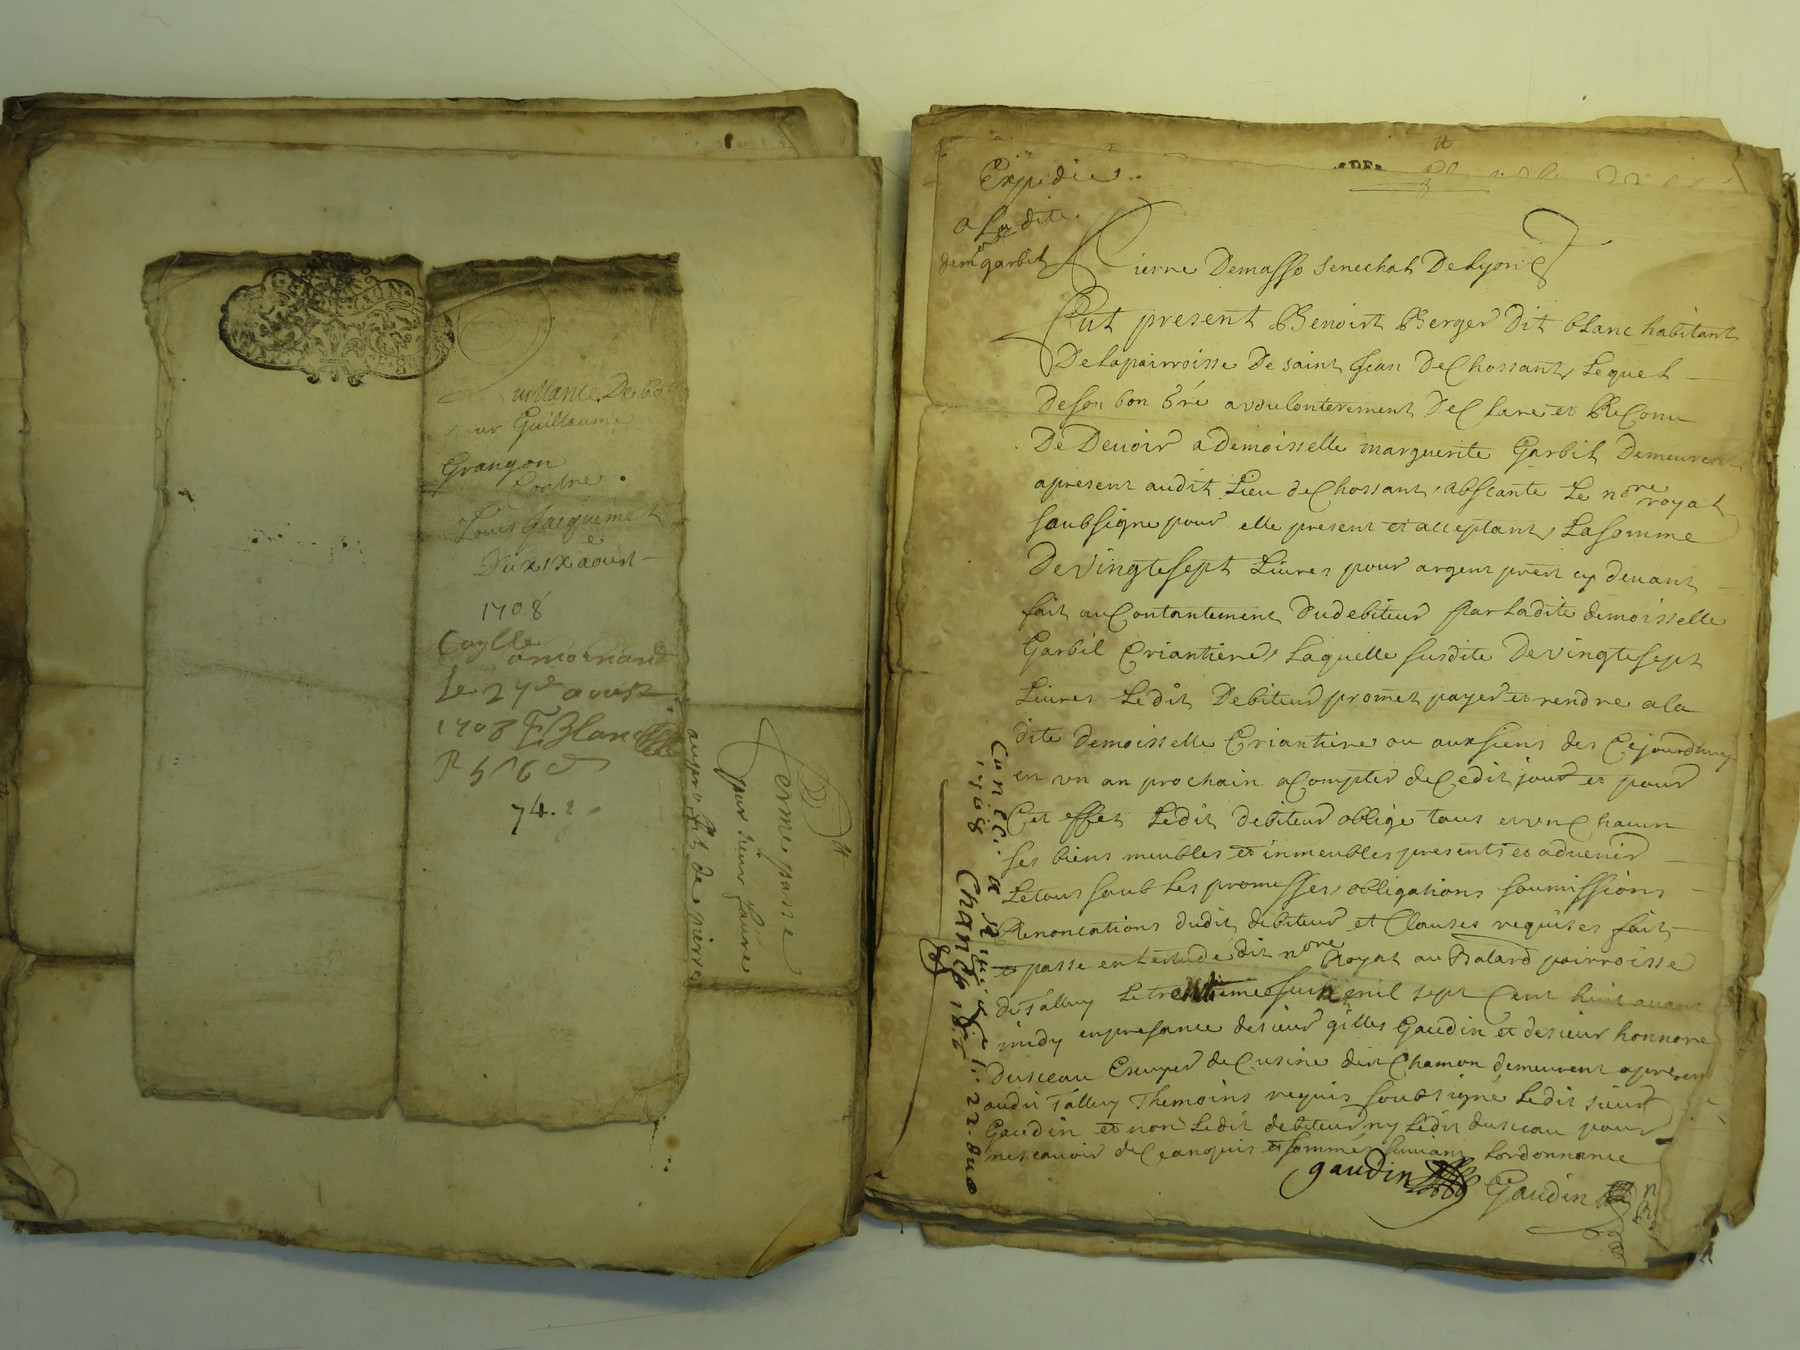 quittance De 60
pour Guillaume
Grangon
Contre
Louis Jacquemet
Du xixe aoust
1708
le 27e aoust
1708 Blanc
74.
ferme passe
par sieur faure
au profit de pierre
Expedie
a La dite
demlle garbil
Pierre Demasso Senechal De Lyon &
Fut present Benoist Berger Dit blanc habitant
De La pairroisse De saint Jean De Chossant, Lequel
De son bon gré a voulonterement DeClare et ReConu
De Devoir a demoisselle marguerite Garbil Demeurent
apresent audit Lieu de Chossant, abscante Le nore royal
soubsigne pour elle present et acceptant, La somme
De vingtesept Livres pour argent prest cy devant
fait au Contantement Dudebiteur par Ladite demoisselle
Garbil Criantiere, Laquelle susdite De vingtesept
Livres Ledit Debiteur promet payer et rendre a la
dite demoisselle Criantiere ou aux siens des Cejourdhuy
en un an prochain a Compter de Cedit jour et pour
Cet effet Ledit debiteur oblige tous et un Chacun
ses biens meubles et inmeubles presents et advenir
Le tout soub Les promesses obligations soumissions
Renontations dudit debiteur et Clauses requises fait
et passe en Lestude dit nore Royal au Batard pairroisse
de Talluy Le trentieme juin mil sept Cent huit avant
midy en presance de sieur gilles Gaudin et de sieur honnore
Dusceau Escuyer de Cusine dit Chamon demeurent apresent
audit Talluy Thesmoins requis soubsigné Ledit sieur
Gaudin et non Ledit debiteur ny Ledit dusceau pour
ne scavoir de Ce enquis et sommés suivant Lordonnance
gaudin Gaudin
1708